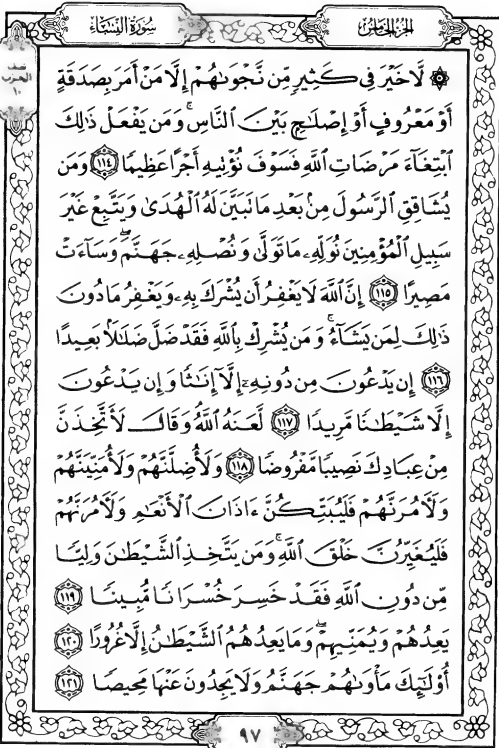 سورة النساء
الجزء الخامس
نصف
الحزب
١٠
۞ لَّا خَيْرَ فِي كَثِيرٍ مِّن نَّجْوَىٰهُمْ إِلَّا مَنْ أَمَرَ بِصَدَقَةٍ
أَوْ مَعْرُوفٍ أَوْ إِصْلَٰحٍۭ بَيْنَ ٱلنَّاسِۚ وَمَن يَفْعَلْ ذَٰلِكَ
ٱبْتِغَآءَ مَرْضَاتِ ٱللَّهِ فَسَوْفَ نُؤْتِيهِ أَجْرًا عَظِيمًا ١١٤ وَمَن
يُشَاقِقِ ٱلرَّسُولَ مِنۢ بَعْدِ مَا تَبَيَّنَ لَهُ ٱلْهُدَىٰ وَيَتَّبِعْ غَيْرَ
سَبِيلِ ٱلْمُؤْمِنِينَ نُوَلِّهِۦ مَا تَوَلَّىٰ وَنُصْلِهِۦ جَهَنَّمَۖ وَسَآءَتْ
مَصِيرًا ١١٥ إِنَّ ٱللَّهَ لَا يَغْفِرُ أَن يُشْرَكَ بِهِۦ وَيَغْفِرُ مَا دُونَ
ذَٰلِكَ لِمَن يَشَآءُۚ وَمَن يُشْرِكْ بِٱللَّهِ فَقَدْ ضَلَّ ضَلَٰلًۢا بَعِيدًا
١١٦ إِن يَدْعُونَ مِن دُونِهِۦٓ إِلَّآ إِنَٰثًا وَإِن يَدْعُونَ
إِلَّا شَيْطَٰنًا مَّرِيدًا ١١٧ لَّعَنَهُ ٱللَّهُۘ وَقَالَ لَأَتَّخِذَنَّ
مِنْ عِبَادِكَ نَصِيبًا مَّفْرُوضًا ١١٨ وَلَأُضِلَّنَّهُمْ وَلَأُمَنِّيَنَّهُمْ
وَلَءَامُرَنَّهُمْ فَلَيُبَتِّكُنَّ ءَاذَانَ ٱلْأَنْعَٰمِ وَلَءَامُرَنَّهُمْ
فَلَيُغَيِّرُنَّ خَلْقَ ٱللَّهِۚ وَمَن يَتَّخِذِ ٱلشَّيْطَٰنَ وَلِيًّا
مِّن دُونِ ٱللَّهِ فَقَدْ خَسِرَ خُسْرَانًا مُّبِينًا ١١٩
يَعِدُهُمْ وَيُمَنِّيهِمْۖ وَمَا يَعِدُهُمُ ٱلشَّيْطَٰنُ إِلَّا غُرُورًا ١٢٠
أُو۟لَٰٓئِكَ مَأْوَىٰهُمْ جَهَنَّمُ وَلَا يَجِدُونَ عَنْهَا مَحِيصًا ١٢١
٩٧